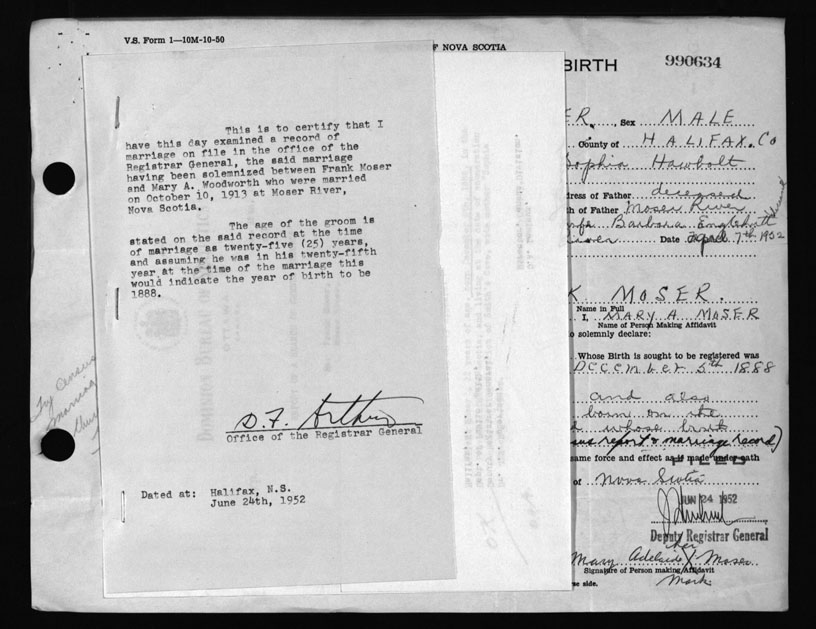 V.S. Form 1—10M-10-50
F NOVA SCOTIA
BIRTH
990634
This is to certify that I
have this day examined a record of
marriage on file in the office of the
Registrar General, the said marriage
having been solemnized between Frank Moser
and Mary A. Woodworth who were married
on October 10, 1913 at Moser River,
Nova Scotia.
The age of the groom is
stated on the said record at the time
of marriage as twenty-five (25) years,
and assuming he was in his twenty-fifth
year at the time of the marriage this
would indicate the year of birth to be
1888.
D. F. Arthur
Office of the Registrar General
Dated at: Halifax, N.S.
June 24th, 1952
ER, Sex MALE
County of HALIFAX. Co
Sophia Hawbolt
dress of Father deceased
th of Father Moser River
Barbara
River Date April 7th 1952
K MOSER.
Name in Full
I, MARY A MOSER
Name of Person Making Affidavit
to solemnly declare:
Whose Birth is sought to be registered was
December 5th 1888
and also
born on the
whose birth
sus report & marriage record)
same force and effect as if made under oath
FILED
of Nova Scotia
JUN 24 1952
Deputy Registrar General
her
Mary Adelaide X Moser
Signature of Person making Affidavit
Mark
se side.
Try Census